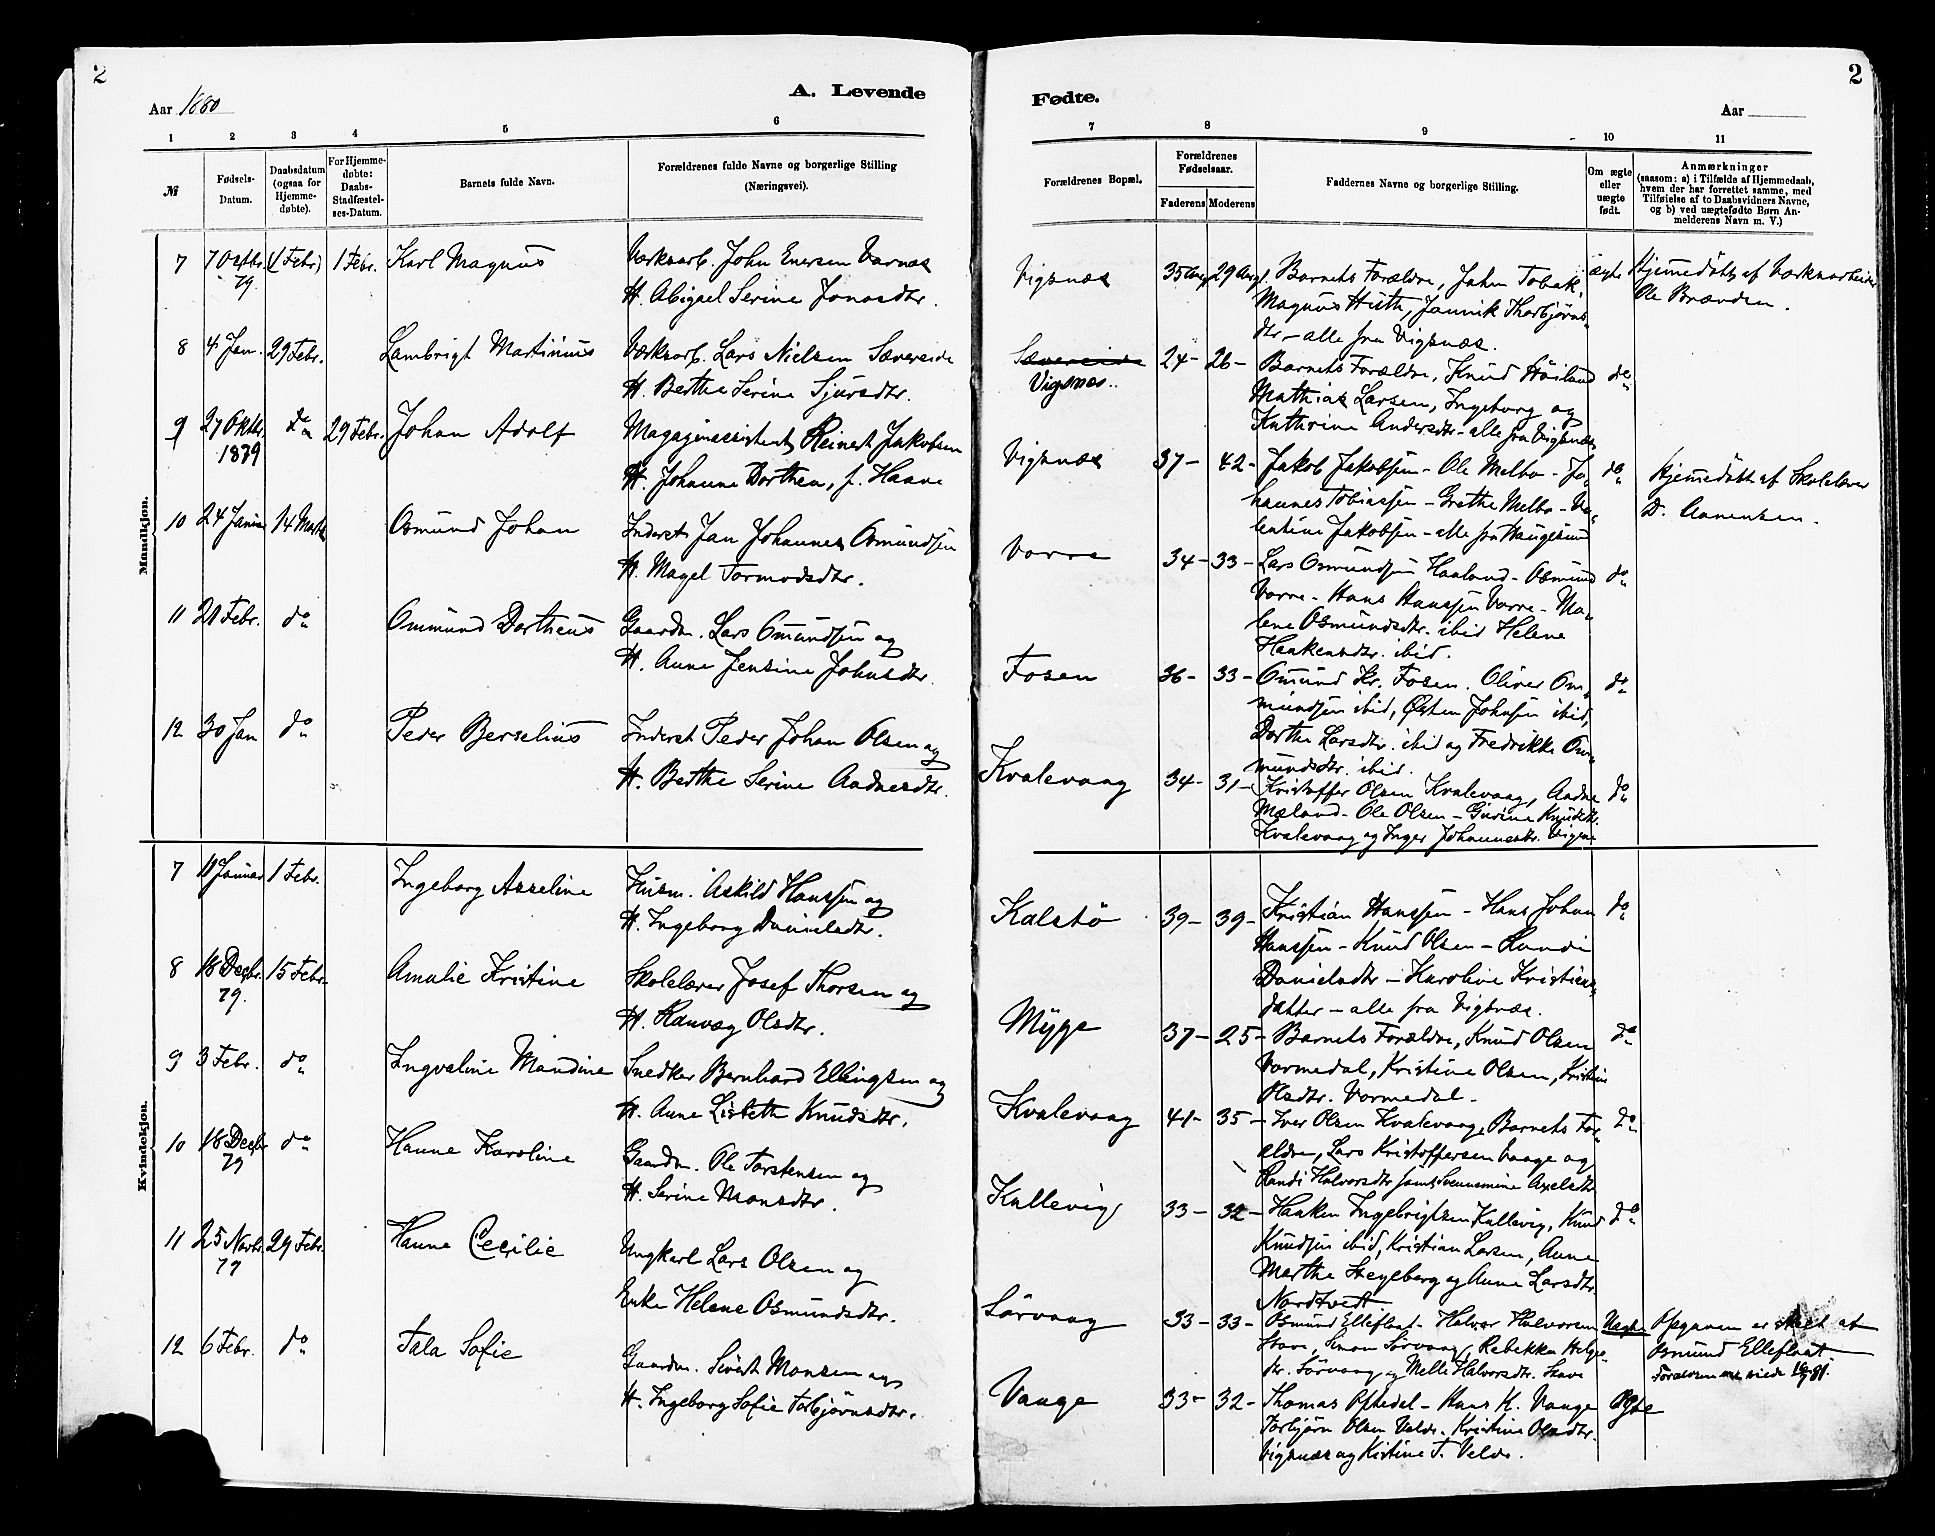 2
Aar 1880
A. Levende
1 2 3 4 5 6
№
Fødsels-
Datum.
Daabsdatum
(ogsaa for
Hjemme-
døbte).
For Hjemme-
døbte:
Daabs-
Stadfæstel-
ses-Datum.
Barnets fulde Navn.
Forældrenes fulde Navne og borgerlige Stilling
(Næringsvei).
Mandkjøn.
7 7 Octbr. (1 Febr) 1 Febr. Karl Magnus
79
John Enersen Varnæs
H. Abigael Serine Jonasdtr.
8 4 Jan. 29 Febr. Lambrigt Martinius
Værksarb. Lars Nielsen Sævereide
H. Berthe Serine Sjursdtr.
9 27 Oktbr. do 29 Febr. Johan Adolf
1879
Magazinassistent Reinert Jakobsen
H. Johanne Dorthea, f. Haave
10 24 Januar 14 Marts Osmund Johan
Inderst Jan Johannes Osmundsen
H. Magel Tormodsdtr.
11 21 Febr. do Ommund Dortheus
Gaardm. Lars Omundsen og
H. Anne Jensine Johnsdtr.
12 30 Jan do Peder Berselius
Inderst Peder Johan Olsen og
H. Berthe Serine Aadnesdtr.
Kvindekjøn.
7 11 Januar 1 Febr. Ingeborg Asseline
Husm. Askild Hanssen og
H. Ingeborg Danielsdtr.
8 18 Decbr. 15 Febr. Amalie Kristine
79.
Skolelærer Josef Thorsen og
H. Ranvæg Olsdtr.
9 3 Febr. do Ingvaline Mandine
Snedker Bernhard Ellingsen og
H. Anne Lisbeth Knudsdtr.
10 18 Decbr do Hanne Karoline
79
Gaardm. Ole Torstensen og
H. Serine Monsdtr.
11 25 Novbr. 29 Febr. Hanne Cecilie
79
Ungkarl Lars Olsen og
Enke Helene Osmundsdtr.
12 6 Febr. do Tala Sofie
Gaardm. Sivert Monsen og
H. Ingeborg Sofie Torbjørnsdtr.
2
Fødte.
Aar
7 8 9 10 11
Forældrenes Bopæl.
Forældrenes
Fødselsaar.
Faderens Moderens
Faddernes Navne og borgerlige Stilling.
Om ægte
eller
uægte
født.
Anmærkninger
(saasom: a) i Tilfælde af Hjemmedaab,
hvem der har forrettet samme, med
Tilføielse af to Daabsvidners Navne,
og b) ved uægtefødte Børn An-
melderens Navn m. V.)
Vigsnæs 35 29 Barnets Forældre, John Tobak, ægte Hjemmedøbt af Værksarbeider
Magnus Huth, Jannik Thorbjørns- Ole Brænden.
dtr – alle fra Vigsnæs.
Sævereide 24– 26– Barnets Forældre, Knud Høiland do
Vigsnæs. Mathias Larsen, Ingeborg og
Kathrine Andersdtr – alle fra Vigsnæs
Vigsnæs 37– 42– Jakob Jakobsen – Ole Melbo – Jo- do Hjemmedøbt af Skolelærer
hannes Tobiassen – Grethe Melbo – Va- D. Aanensen.
lentine Jakobsen – alle fra Haugesund
Vorre 34– 33– Lars Osmundsen Haaland – Osmund do
Vorre – Hans Hanssen Vorre – Ma-
lene Osmundsdtr. ibid Helene
Haakensdtr. ibid.
Fosen 36– 33– Omund Kr. Fosen. Oliver Om- do
mundsen ibid, Østen Johnsen ibid,
Dorthe Larsdtr. ibid og Fredrikke Om-
mundsdtr. ibid.
Kvalevaag 34– 31– Kristoffer Olsen Kvalevaag, Aadne do
Mæland – Ole Olsen – Gurine Knudsdtr.
Kvalevaag og Inger Johannesdtr. Vigsnæs
Kalstø 39– 39– Kristian Hanssen – Hans Johan do
Hanssen – Knud Olsen – Randi
Danielsdtr – Karoline Kristians-
datter – alle fra Vigsnæs.
Myge 37– 25– Barnets Forældre, Knud Olsen do
Vormedal, Kristine Olsen, Kristine
Olsdtr. Vormedal.
Kvalevaag 41– 35– Iver Olsen Kvalevaag, Barnets For- do
ældre, Lars Kristoffersen Vaage og
Randi Halvorsdtr samt Svennemine Axelsdtr
Kallevig 33– 32– Haaken Ingebrigtsen Kallevig, Knud do
Knudsen ibid, Kristian Larsen, Anne
Marthe Heyeberg og Anne Larsdtr
Nordtvedt
Sørvaag 33– 33– Osmund Elleflaat – Halvor Halvorsen Uægte Opgaven er skeet af
Stave, Simon Sørvaag, Rebekka Helge- Osmund Elleflaat.
dtr. Sørvaag og Melle Halvorsdtr. Stave
Vaage 33– 32– Thomas Ophedal – Hans K. Vaage Ægte
Torbjørn Olsen Velde. Kristine Olsdtr.
Vigsnæs og Kistine T. Velde.